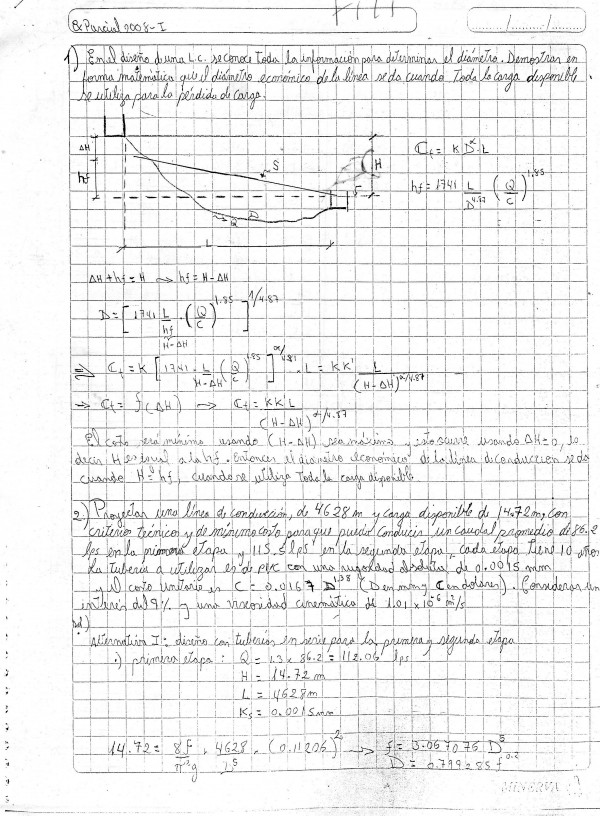 Ex Parcial 2008-I
1) En el diseño de una L.C. se conoce Toda la información para determinar el diámetro. Demostrar en
forma matemática que el diámetro económico de la línea se da cuando Toda la carga disponible
se utiliza para la pérdida de carga.
ΔH
hf
S
H
Q
D
L
Ct = K D^α L
hf = 1741 L/D^4.87 (Q/C)^1.85
ΔH + hf = H → hf = H - ΔH
D = [1741 L/hf · (Q/C)^1.85]^1/4.87
H-ΔH
⇒ Ct = K [1741 · L/(H-ΔH) (Q/C)^1.85]^α/4.87 · L = KK' L/(H-ΔH)^α/4.87
→ Ct = f(ΔH) → Ct = KK'L/(H-ΔH)^α/4.87
El costo será mínimo cuando (H-ΔH) sea máximo y esto ocurre cuando ΔH=0, es
decir H es igual a la hf. Entonces el diámetro económico de la línea de conducción se da
cuando H = hf, cuando se utiliza toda la carga disponible
2) Proyectar una línea de conducción, de 4628 m y carga disponible de 14.72 m, con
criterio técnico y de mínimo costo para que pueda conducir un caudal promedio de 86.2
lps en la primera etapa y 115.5 lps en la segunda etapa, cada etapa tiene 10 años
La tubería a utilizar es de PVC con una rugosidad absoluta de 0.0015 mm
y el costo unitario es C = 0.0167 D^1.38 (D en mm y C en dolares). Considerar un
interés del 9% y una viscosidad cinemática de 1.01 x 10^-6 m²/s
sol)
Alternativa I: diseño con tuberías en serie para la primera y segunda etapa
·) primera etapa: Q = 1.3 x 86.2 = 112.06 lps
H = 14.72 m
L = 4628 m
Ks = 0.0015 mm
14.72 = 8f/π²g · 4628/D^5 · (0.11206)² → f = 3.067076 D^5
D = 0.799285 f^0.2
MINERVA